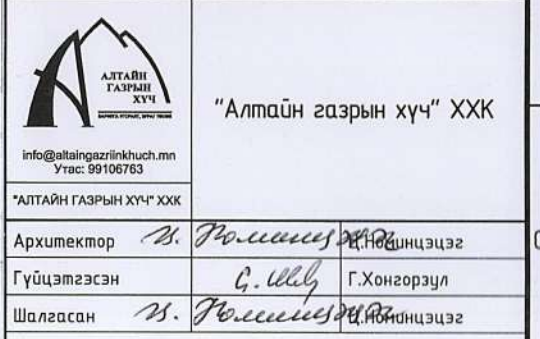 АЛТАЙН
ГАЗРЫН
ХҮЧ
info@altaingazriinkhuch.mn
Утас: 99106763
"АЛТАЙН ГАЗРЫН ХҮЧ" ХХК
"Алтайн газрын хүч" ХХК
Архитектор Ц.Номинцэцэг
Гүйцэтгэсэн Г.Хонгорзул
Шалгасан Ц.Номинцэцэг